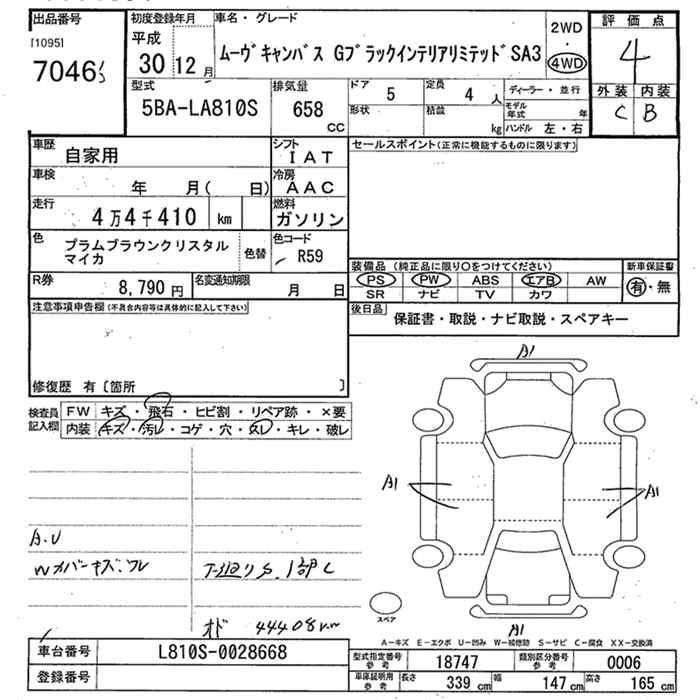 出品番号
[1095]
7046
初度登録年月
平成
30 12月
車名・グレード
ムーヴキャンバス GブラックインテリアリミテッドSA3
2WD
・
4WD
評価点
4
外装 内装
C B
型式
5BA-LA810S
排気量
658
CC
ドア 5
定員 4 人
形状
積載 kg
ディーラー・並行
モデル年式 年
ハンドル 左・右
車歴 自家用
シフト IAT
車検 年 月( 日)
冷房 AAC
走行 4万4千410 km
燃料 ガソリン
色 プラムブラウンクリスタル
マイカ
色替
色コード R59
R券 8,790円
名変通知期限 月 日
セールスポイント(正常に機能するものに限ります)
装備品 (純正品に限り〇をつけてください)
PS PW ABS エアB AW
SR ナビ TV カワ
新車保証書
有・無
後日品 保証書・取説・ナビ取説・スペアキー
注意事項申告欄(不具合内容等は具体的に記入して下さい)
修復歴 有〔箇所 〕
検査員
記入欄
FW キズ・飛石・ヒビ割・リペア跡・×要
内装 キズ・汚レ・コゲ・穴・スレ・キレ・破レ
A1
A1
A1
A1
A.U
Wカバーキズ.ワレ
オド 44408km
スペア
A-キズ E-エクボ U-凹み W-補修跡 S-サビ C-腐食 XX-交換済
車台番号 L810S-0028668
登録番号
型式指定番号
参考
18747
類別区分番号
参考
0006
車庫証明用
参考
長さ 339 cm 幅 147 cm 高さ 165 cm